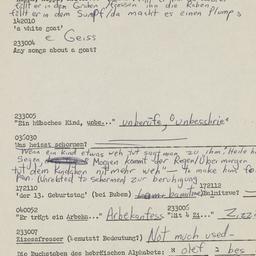 fällt er in den Graben fressen ihn die Raben
fällt er in dem Sumpf/da macht es einen Plumps
142010
'a white goat'
e Geiss
233004
Any songs about a goat?
233005
"Ein hübsches Kind, unbe..." unberufe, Ounbeschrie
030030
Was heisst schormen?
Wenn ein Kind etwas weh tut sagt man zu ihm: Heile h
Segen Morgen kommt der Regen/Übermorgen
tut dem Kindchen nit mehr weh" — to make
(Unrebten) to schormen) zur beruhigung
172110
'der 13. Geburtstag' (bei Buben) bar mitzwe
172112
Bolmitwe?
040052
"Er trägt ein Arbeka..." Arbekanfess
233006
"Mit à Zi..." Z.zz
233007
Zizessfresser (benutzt? Bedeutung?) Not much used-
Die Buchstaben des hebräischen Alphabets: א olef ב bes